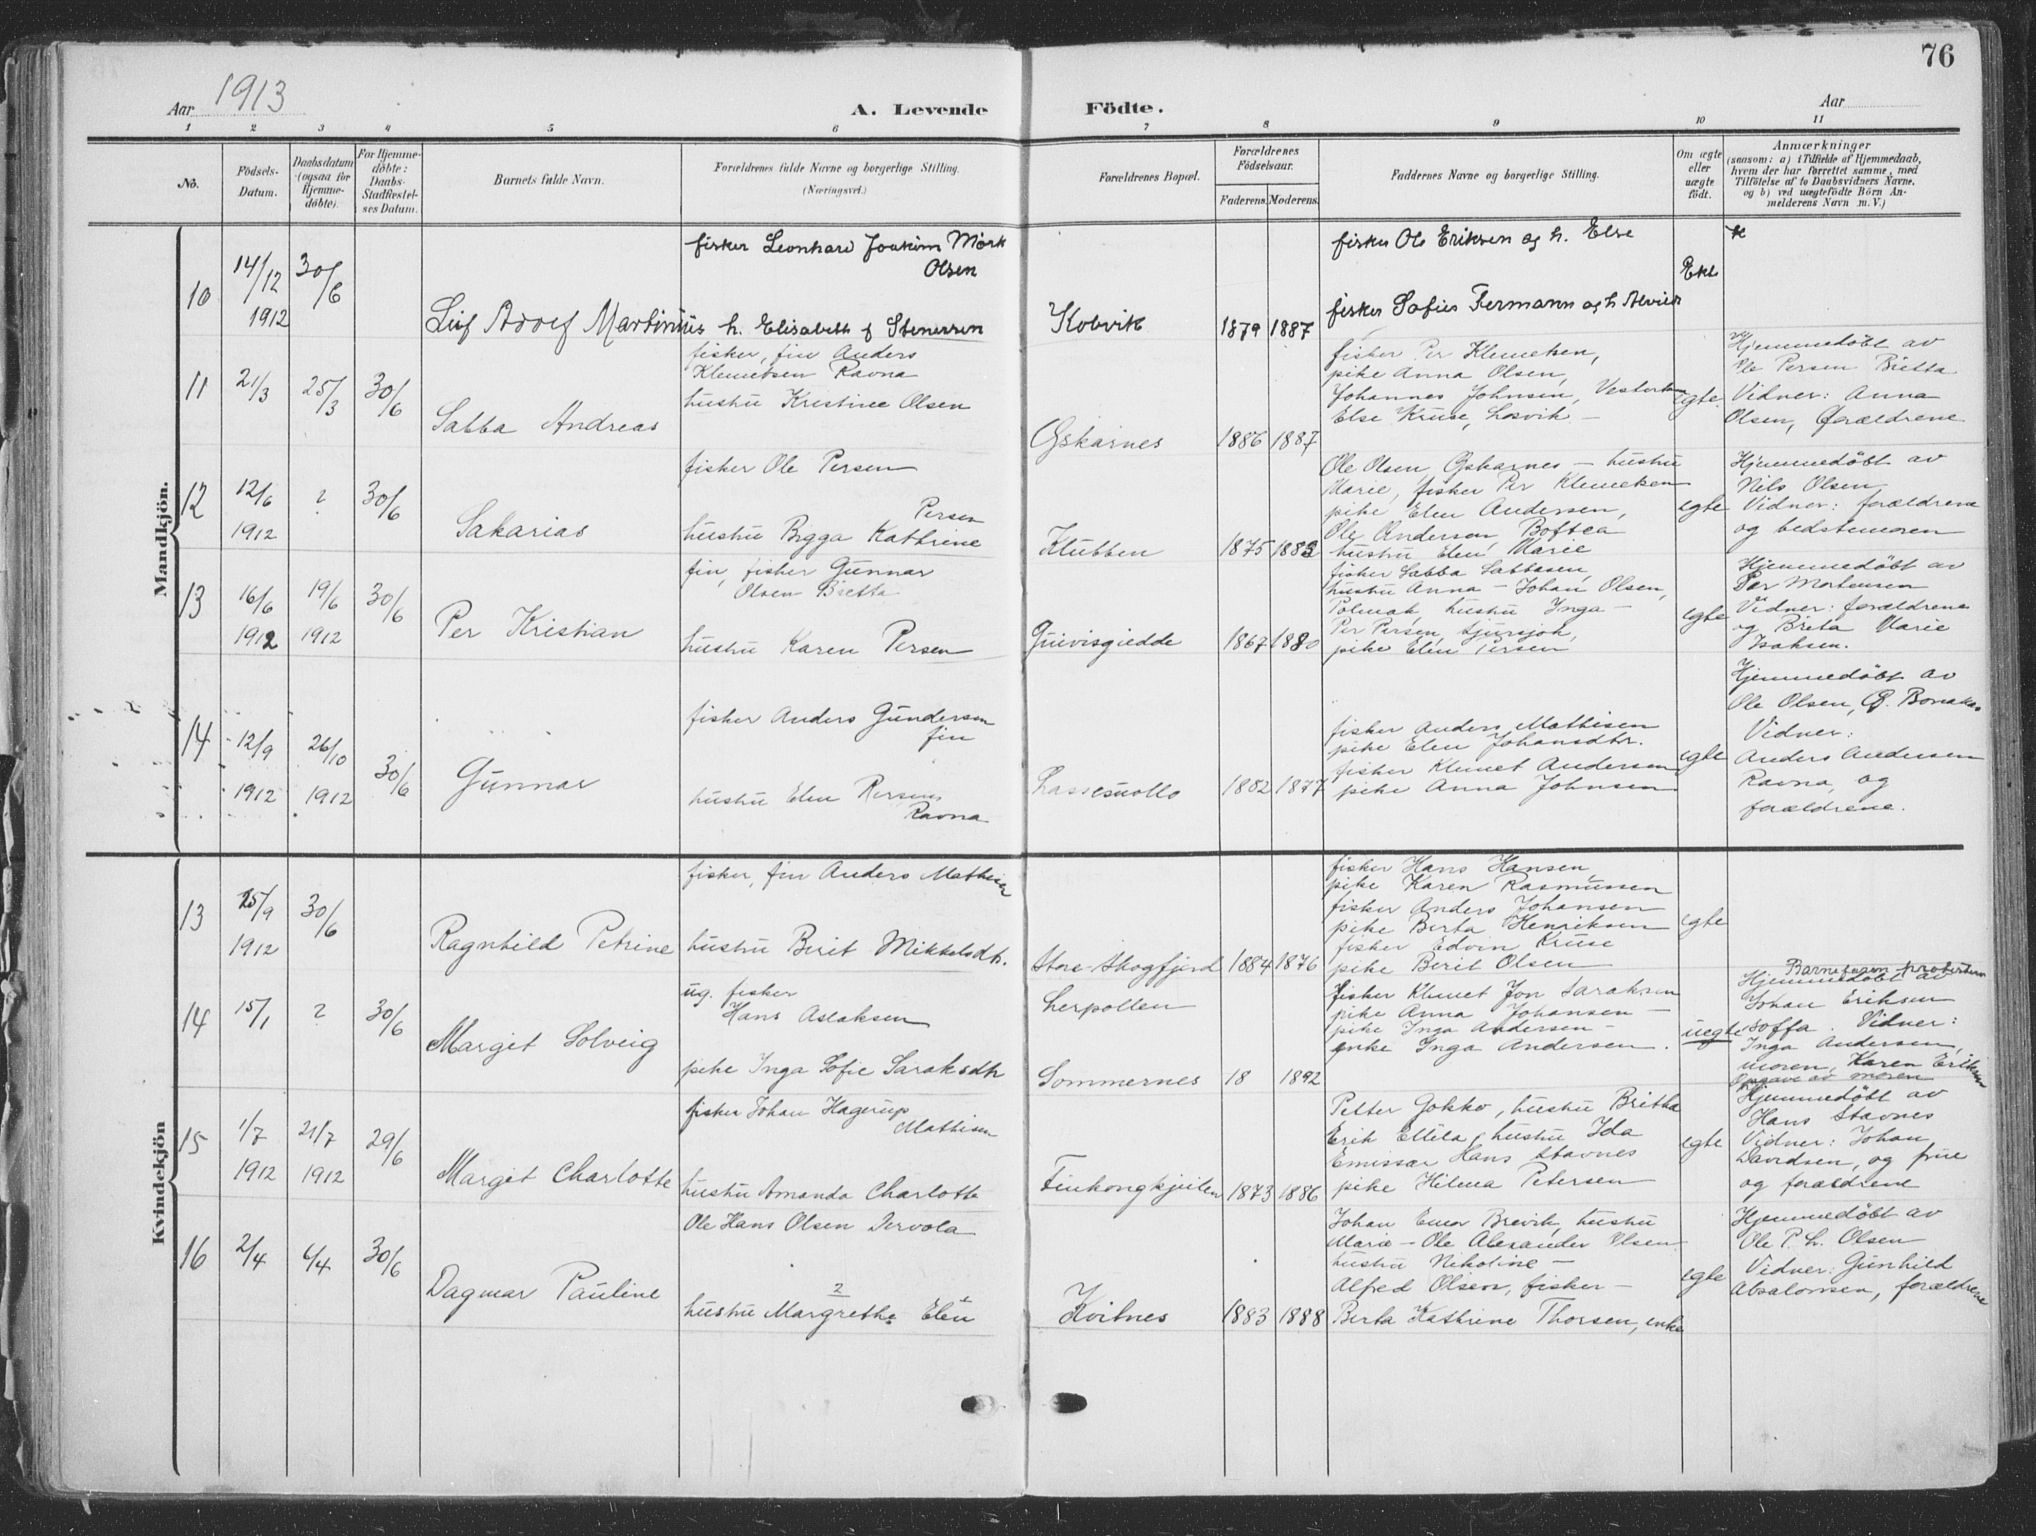 76
Aar 1913
A. Levende Födte.
Aar
1 2 3 4 5 6 7 8 9 10 11
No.
Födsels-
Datum.
Daabsdatum
(ogsaa for
Hjemme-
döbte).
For Hjemme-
döbte:
Daabs-
Stadfæstel-
ses Datum.
Barnets fulde Navn.
Forældrenes fulde Navne og borgerlige Stilling.
(Næringsvei.)
Forældrenes Bopæl.
Forældrenes
Födselsaar.
Faderens. Moderens.
Faddernes Navne og borgerlige Stilling.
Om ægte
eller
uægte
født.
Anmærkninger
(saasom: a) i Tilfælde af Hjemmedaab,
hvem der har forrettet samme, med
Tilföielse af to Daabsvidners Navne,
og b) ved uægtefödte Börn An-
melderens Navn m. V.)
Mandkjön.
10
14/12
1912
30/6
Leif Adolf Martinius
fisker Leonhard Joakim Mörk
Olsen
h. Elisabeth f Stenersen
Kobvik
1879 1887
fisker Ole Eriksen og h. Else
fisker Sofus Fermann og h. Alvilde
Ekte
11
21/3
25/3
30/6
Sabba Andreas
fisker, fin Anders
Klemetsen Ravna
hustru Kristine Olsen
Gskarnes
1886 1887
fisker Per Klemetsen,
pike Anna Olsen,
Johannes Johnsen, Vestertana
Else Kruse,
egte
Hjemmedöbt av
Ole Persen Britta
Vidner: Anna
Olsen, forældrene
12
12/6
1912
?
30/6
Sakarias
fisker Ole Persen
Persen
hustru Bigga Kathrine
Klubben
1875 1883
Ole Olsen, Gskarnes – hustru
Marie, fisker Per Klemetsen
pike Elen Andersen,
Ole Anderson, Boftsa
hustru Elen Marie
egte
Hjemmedöbt av
Nils Olsen
Vidner: forældrene
og bedstemoren
13
16/6
1912
19/6
1912
30/6
Per Kristian
fin, fisker Gunnar
Olsen Britta
hustru Karen Persen
Guivisgiedde
1867 1880
fisker Sabba Sabbasen,
hustru Anna – Johan Olsen,
Polmak, hustru Inga –
Per Persen,
pike Elen Persen
egte
Hjemmedöbt av
Per Mortensen
Vidner: forældrene
og Brita Marie
Isaksen.
14
12/9
1912
26/10
1912
30/6
Gunnar
fisker Anders Gundersen
fin
hustru Elen Persen
Ravna
1882 1877
fisker Anders Mathisen
pike Elen Johansdtr.
fisker Klemet Andersen
pike Anna Johnsen
egte
Hjemmedöbt av
Ole Olsen,
Vidner:
Anders Andersen
Ravna, og
forældrene.
Kvindekjön
13
25/9
1912
30/6
Ragnhild Petrine
fisker, fin Anders Mathisen
hustru Berit Mikkelsdtr.
Store-Skogfjord
1884 1876
fisker Hans Hansen
pike Karen Rasmussen
fisker Anders Johansen
pike Berta Henriksen
fisker Edvin Kruse
pike Berit Olsen
egte
14
15/1
?
30/6
Marget Solveig
ug. fisker
Hans Aslaksen
pike Inga Sofie Saraksdtr
Lerpollen
Sommernes
18 1892
fisker Klemet Jon Saraksen
pike Anna Johansen –
pike Inga Andersen –
enke Inga Andersen.
uegte
Barnefaren protesterer
Hjemmedöbt av
Johan Eriksen
Soffa. Vidner:
Inga Andersen,
moren, Karen Eriksen
Opgave av moren
15
1/7
1912
21/7
1912
29/6
Marget Charlotte
fisker Johan Hagerup
Mathisen
hustru Amanda Charlotte
Finkongkjeilen
1873 1886
Petter Gokko, hustru Britha
Erik Ellila, hustru Ida
Emissær Hans Stavnes
pike Hilma Petersen
egte
Hjemmedöbt av
Hans Stavnes
Vidner: Johan
Davidsen, og frue
og forældrene
16
2/4
6/4
30/6
Dagmar Pauline
Ole Hans Olsen Dervola
2 1
hustru Margrethe Elen
Kvitnes
1883 1888
Johan Emor Brevik, hustru
Maria – Ole Alexander Olsen
hustru Nikoline –
Alfred Olsen, fisker –
Berta Kathrine Thorsen, enke
egte
Hjemmedöbt av
Ole P. L. Olsen
Vidner: Gunhild
Absalonsen, forældrene